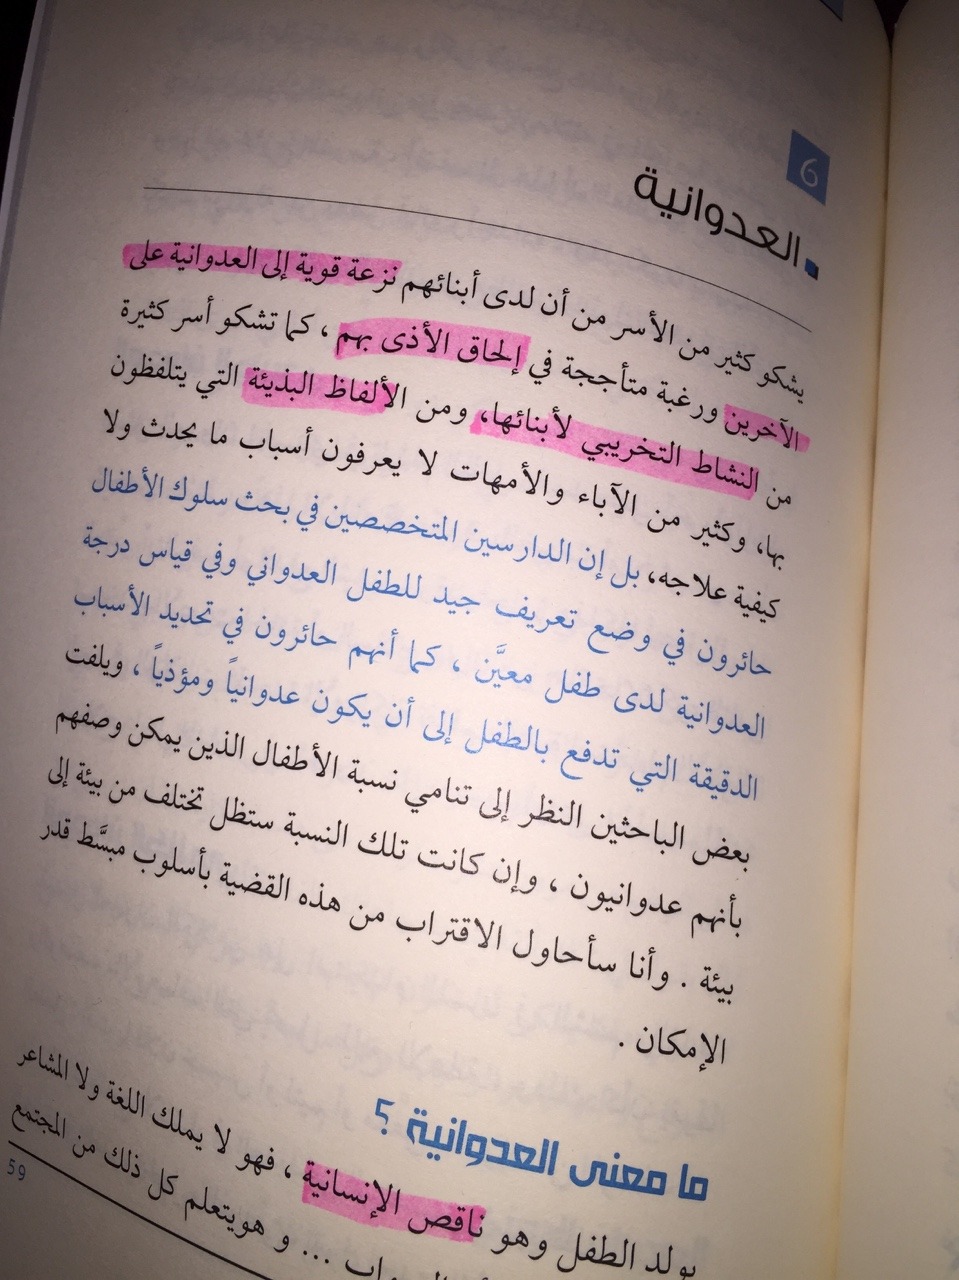 6
العدوانية
يشكو كثير من الأسر من أن لدى أبنائهم نزعة قوية إلى العدوانية على
الآخرين ورغبة متأججة في إلحاق الأذى بهم ، كما تشكو أسر كثيرة
من النشاط التخريبي لأبنائها، ومن الألفاظ البذيئة التي يتلفظون
بها، وكثير من الآباء والأمهات لا يعرفون أسباب ما يحدث ولا
كيفية علاجه، بل إن الدارسين المتخصصين في بحث سلوك الأطفال
حائرون في وضع تعريف جيد للطفل العدواني وفي قياس درجة
العدوانية لدى طفل معيَّن ، كما أنهم حائرون في تحديد الأسباب
الدقيقة التي تدفع بالطفل إلى أن يكون عدوانياً ومؤذياً ، ويلفت
بعض الباحثين النظر إلى تنامي نسبة الأطفال الذين يمكن وصفهم
بأنهم عدوانيون ، وإن كانت تلك النسبة ستظل تختلف من بيئة إلى
بيئة . وأنا سأحاول الاقتراب من هذه القضية بأسلوب مبسَّط قدر
الإمكان .
ما معنى العدوانية ؟
يولد الطفل وهو ناقص الإنسانية ، فهو لا يملك اللغة ولا المشاعر
... و هويتعلم كل ذلك من المجتمع
59